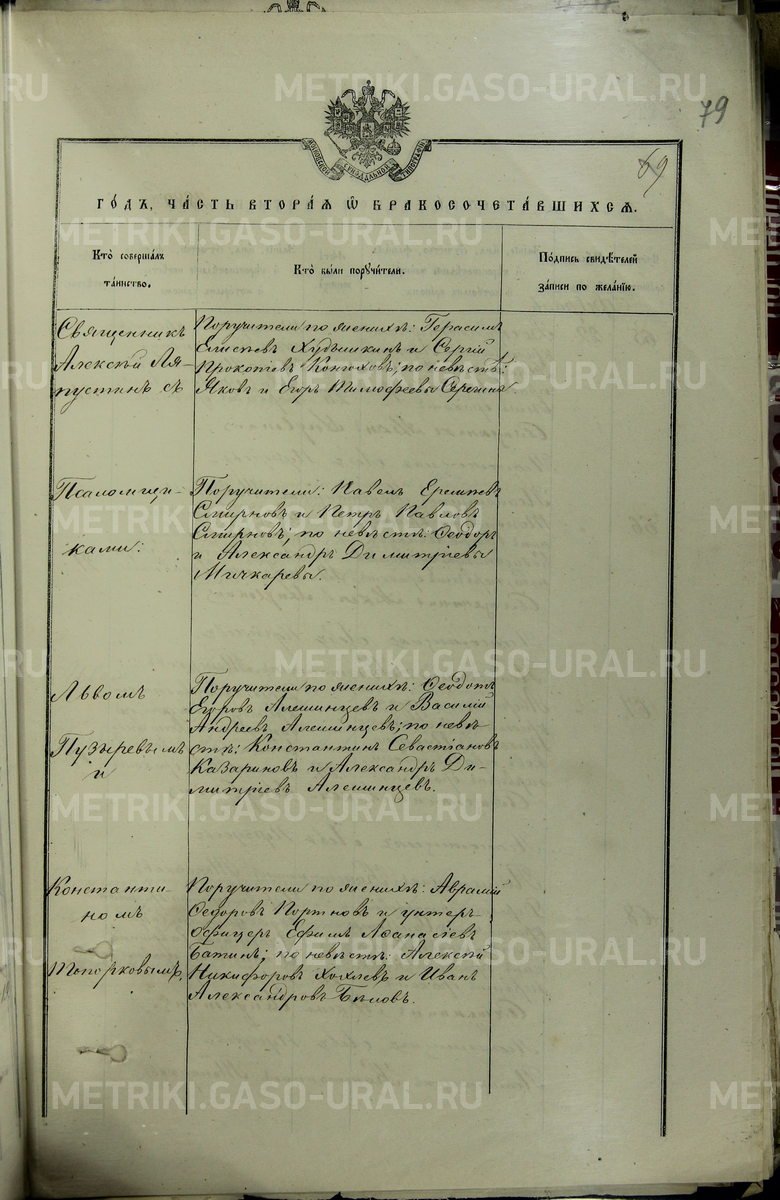 79
69
МОСКОВСКОЙ СѴНОДАЛЬНОЙ ТИПОГРАФІИ
ГО́ДЪ, ЧА́СТЬ ВТОРА́Я Ѿ БРАКОСОЧЕТА́ВШИХСЯ.
Кто̀ соверша́лъ та́инство.
Кто̀ бы́ли поручи́тели.
По́дпись свидѣ́телей за́писи по жела́нію.
Священникъ
Алексѣй Ля-
пустинъ съ
Поручители по женихѣ: Герасимъ
Елисѣевъ Худышкинъ и Сергій
Прокопьевъ Конюховъ; по невѣстѣ:
Яковъ и Егоръ Тимофеевы Серегины.
Псаломщи-
ками:
Поручители: Павелъ Еремѣевъ
Смирновъ и Петръ Павловъ
Смирновъ; по невѣстѣ: Ѳеодоръ
и Александръ Димитріевы
Мичкаревы.
Львомъ
Пузыревымъ
и
Поручители по женихѣ: Ѳеодотъ
Егоровъ Алешинцевъ и Василій
Андреевъ Алешинцевъ; по невѣ-
стѣ: Константинъ Севастіановъ
Казариновъ и Александръ Ди-
митріевъ Алешинцевъ.
Константи-
номъ
Топорковымъ.
Поручители по женихѣ: Аврамій
Ѳедоровъ Портновъ и унтеръ-
офицеръ Ефимъ Аѳанасіевъ
Батинъ; по невѣстѣ: Алексѣй
Никифоровъ Хохлевъ и Иванъ
Александровъ Бѣловъ.
METRIKI.GASO-URAL.RU